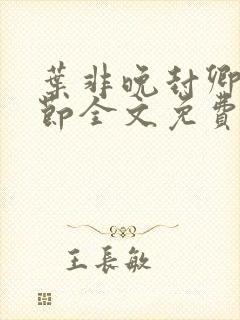 葉非晚封卿
節全文免費
王長敏